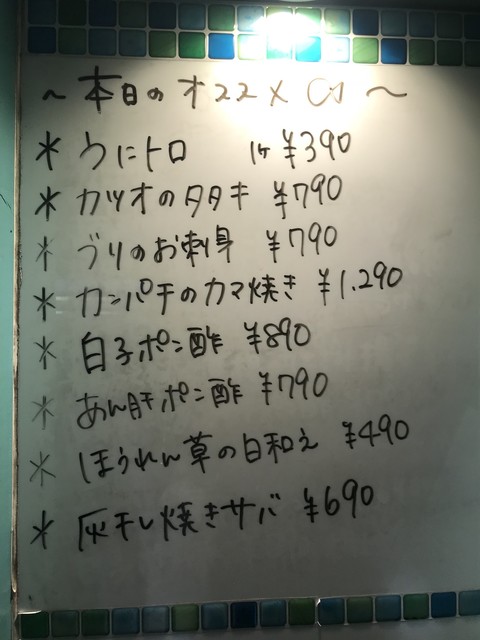 ～本日のオススメ～
＊うにトロ 1ヶ ¥390
＊カツオのタタキ ¥790
＊ブリのお刺身 ¥790
＊カンパチのカマ焼き ¥1.290
＊白子ポン酢 ¥890
＊あん肝ポン酢 ¥790
＊ほうれん草の白和え ¥490
＊灰干し焼きサバ ¥690